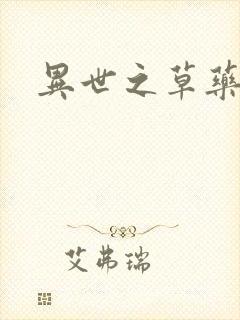 異世之草藥
艾弗瑞